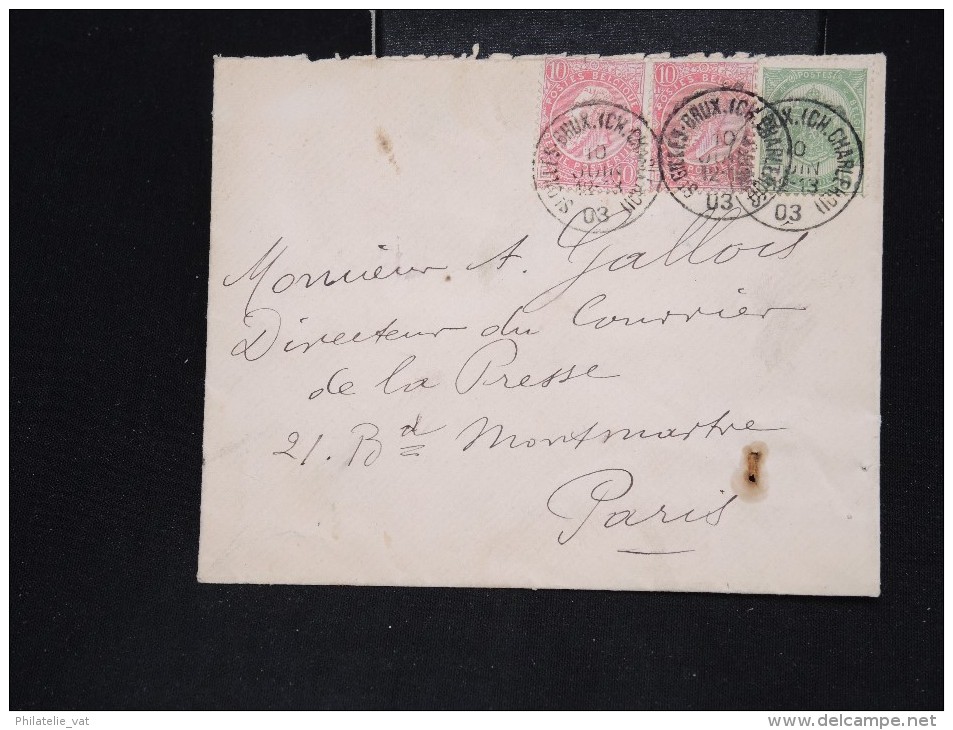 10 10
POSTES BELGIQUE POSTES BELGIQUE POSTES
ST GILLES-BRUX. (CH. CHARLEROI)
10
JUIN
12-13
03
ST GILLES-BRUX. (CH. CHARLEROI)
10
JUIN
12-13
03
BRUX. (CH. CHARLEROI)
10
JUIN
12-13
03
Monsieur A. Gallois
Directeur du Courrier
de la Presse
21. Bd Montmartre
Paris
Philatelie_vat
www.delcampe.net